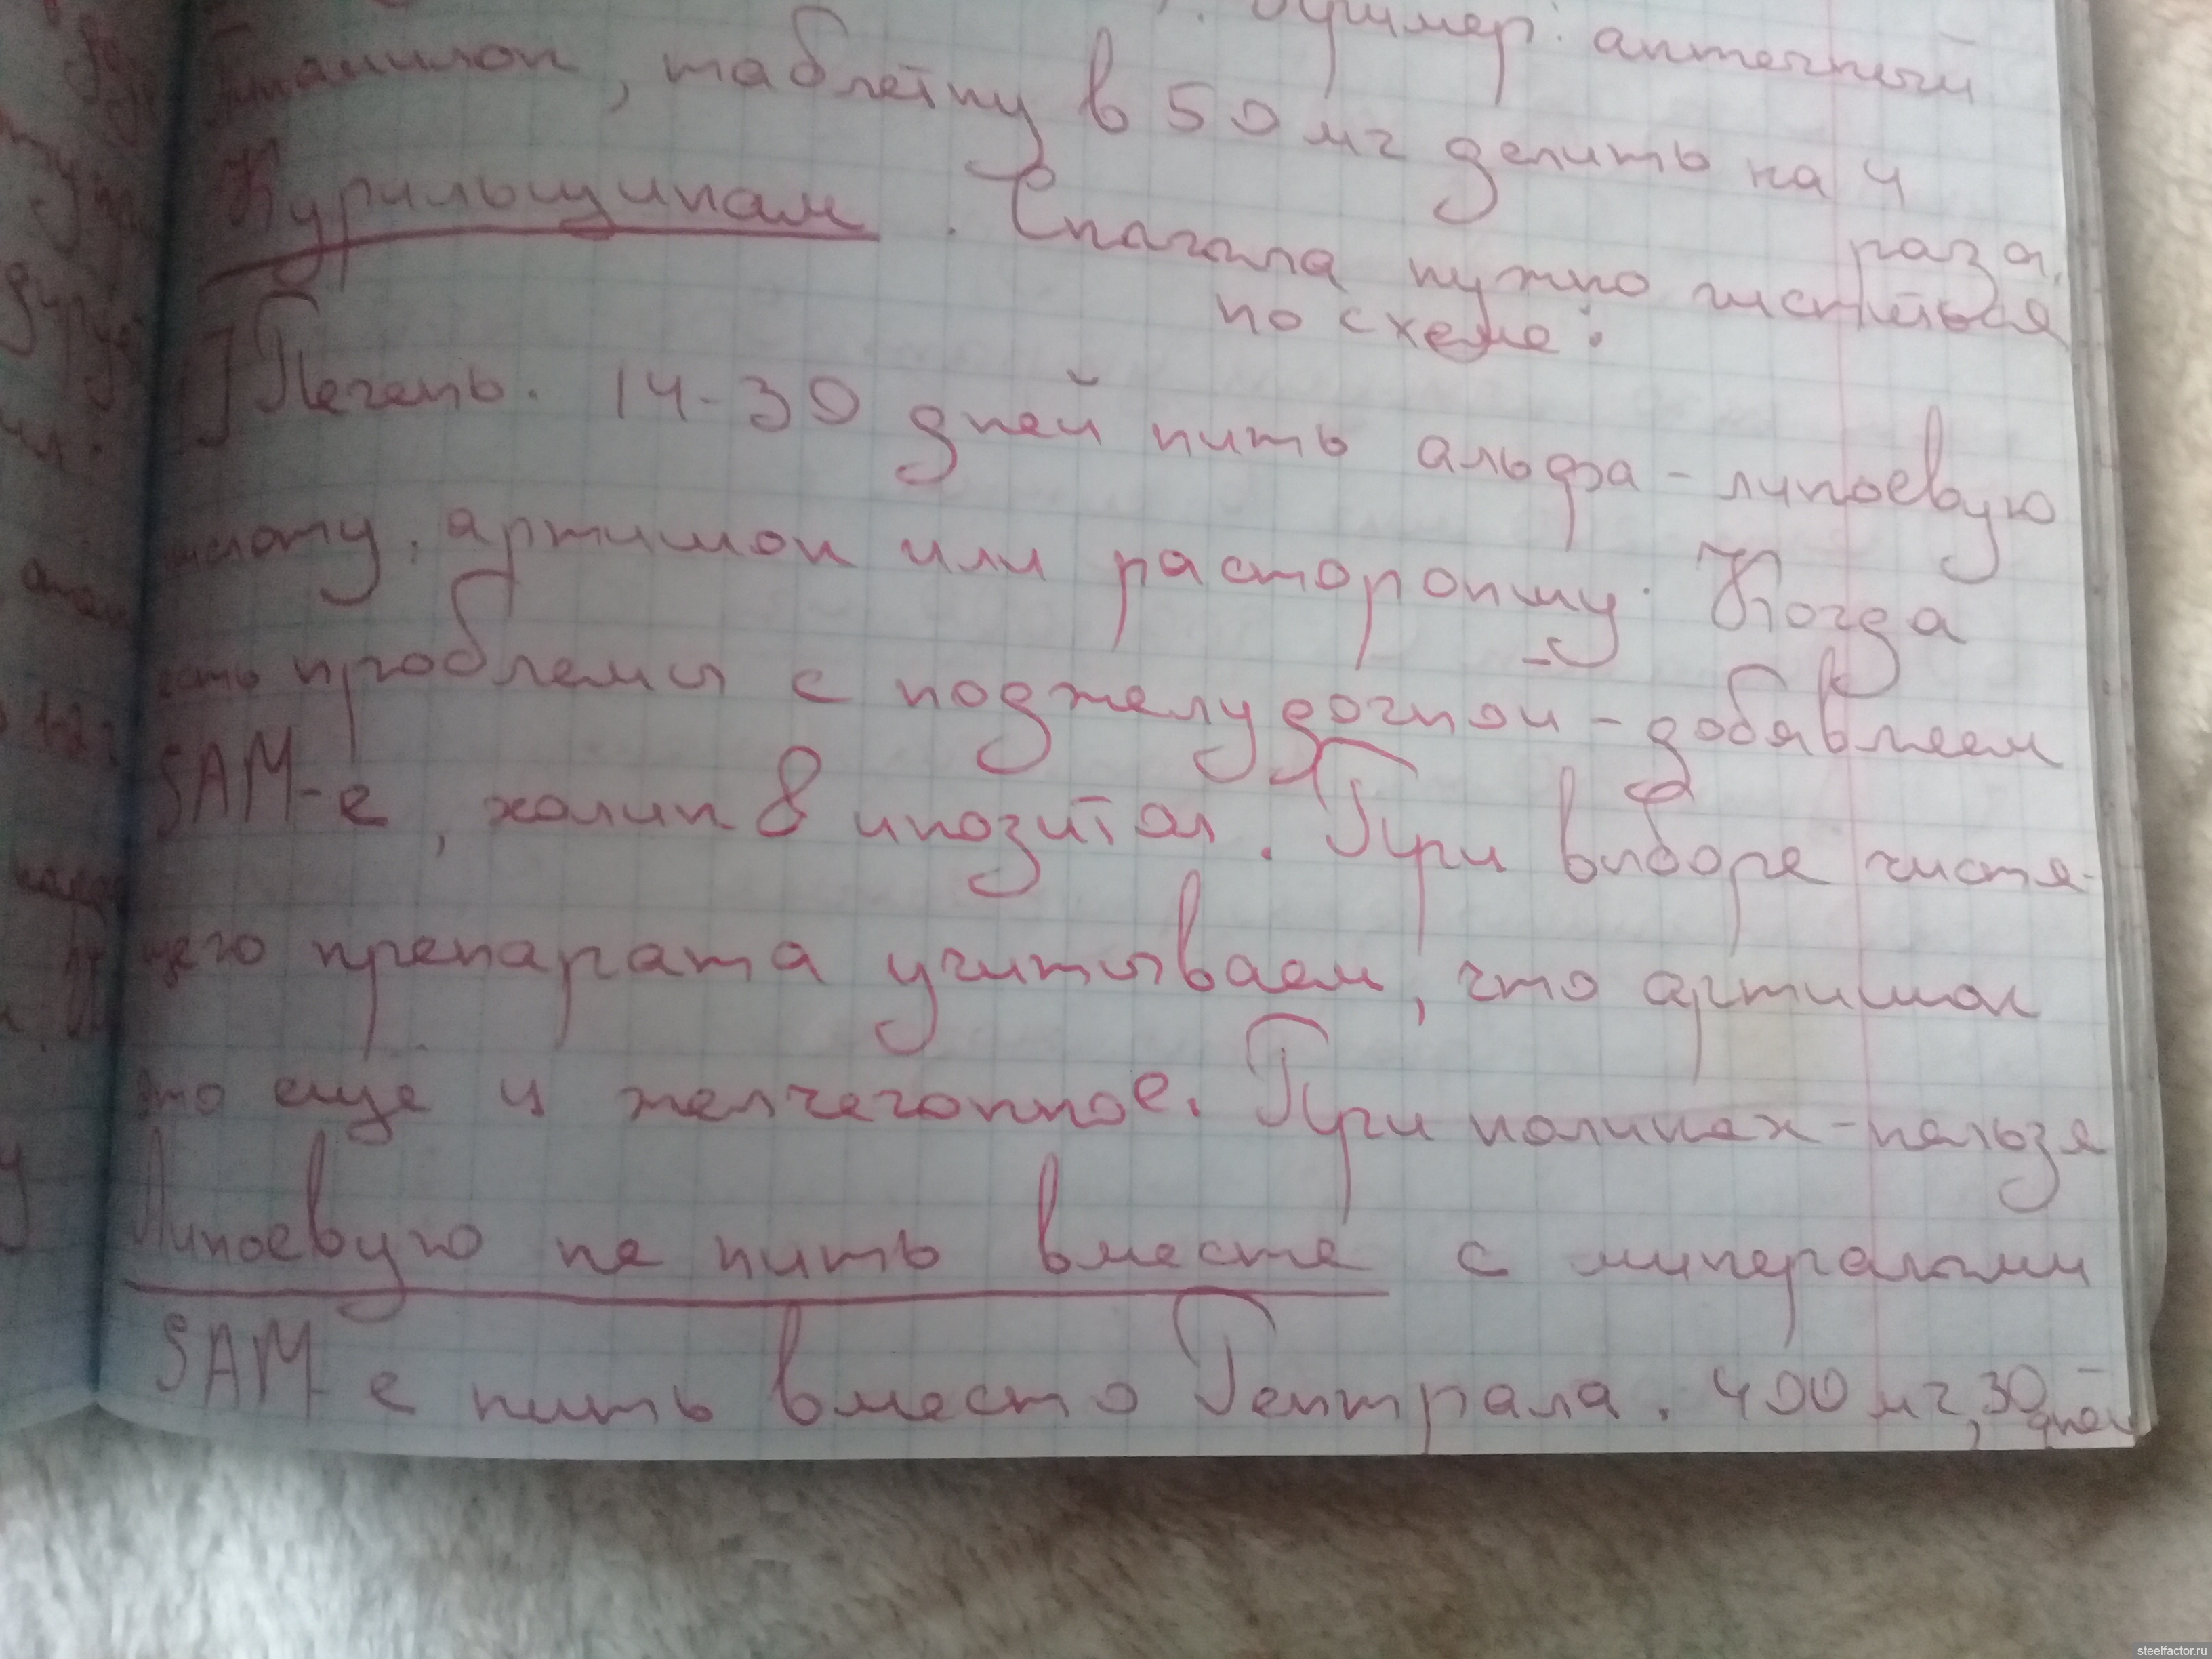 Пример: аптечный
таблетку в 50 мг делить на 4
раза.
Курильщикам. Сначала нужно чиститься
по схеме:
Печень. 14-30 дней пить альфа-липоевую
кислоту, артишок или расторопшу. Когда
есть проблемы с поджелудочной - добавляем
SAM-e, холин & инозитол. При выборе чистя-
щего препарата учитываем, что артишок
это еще и желчегонное. При коликах - нельзя
Липоевую не пить вместе с минералами
SAM-e пить вместо Гептрала. 400 мг, 30 дней
steelfactor.ru